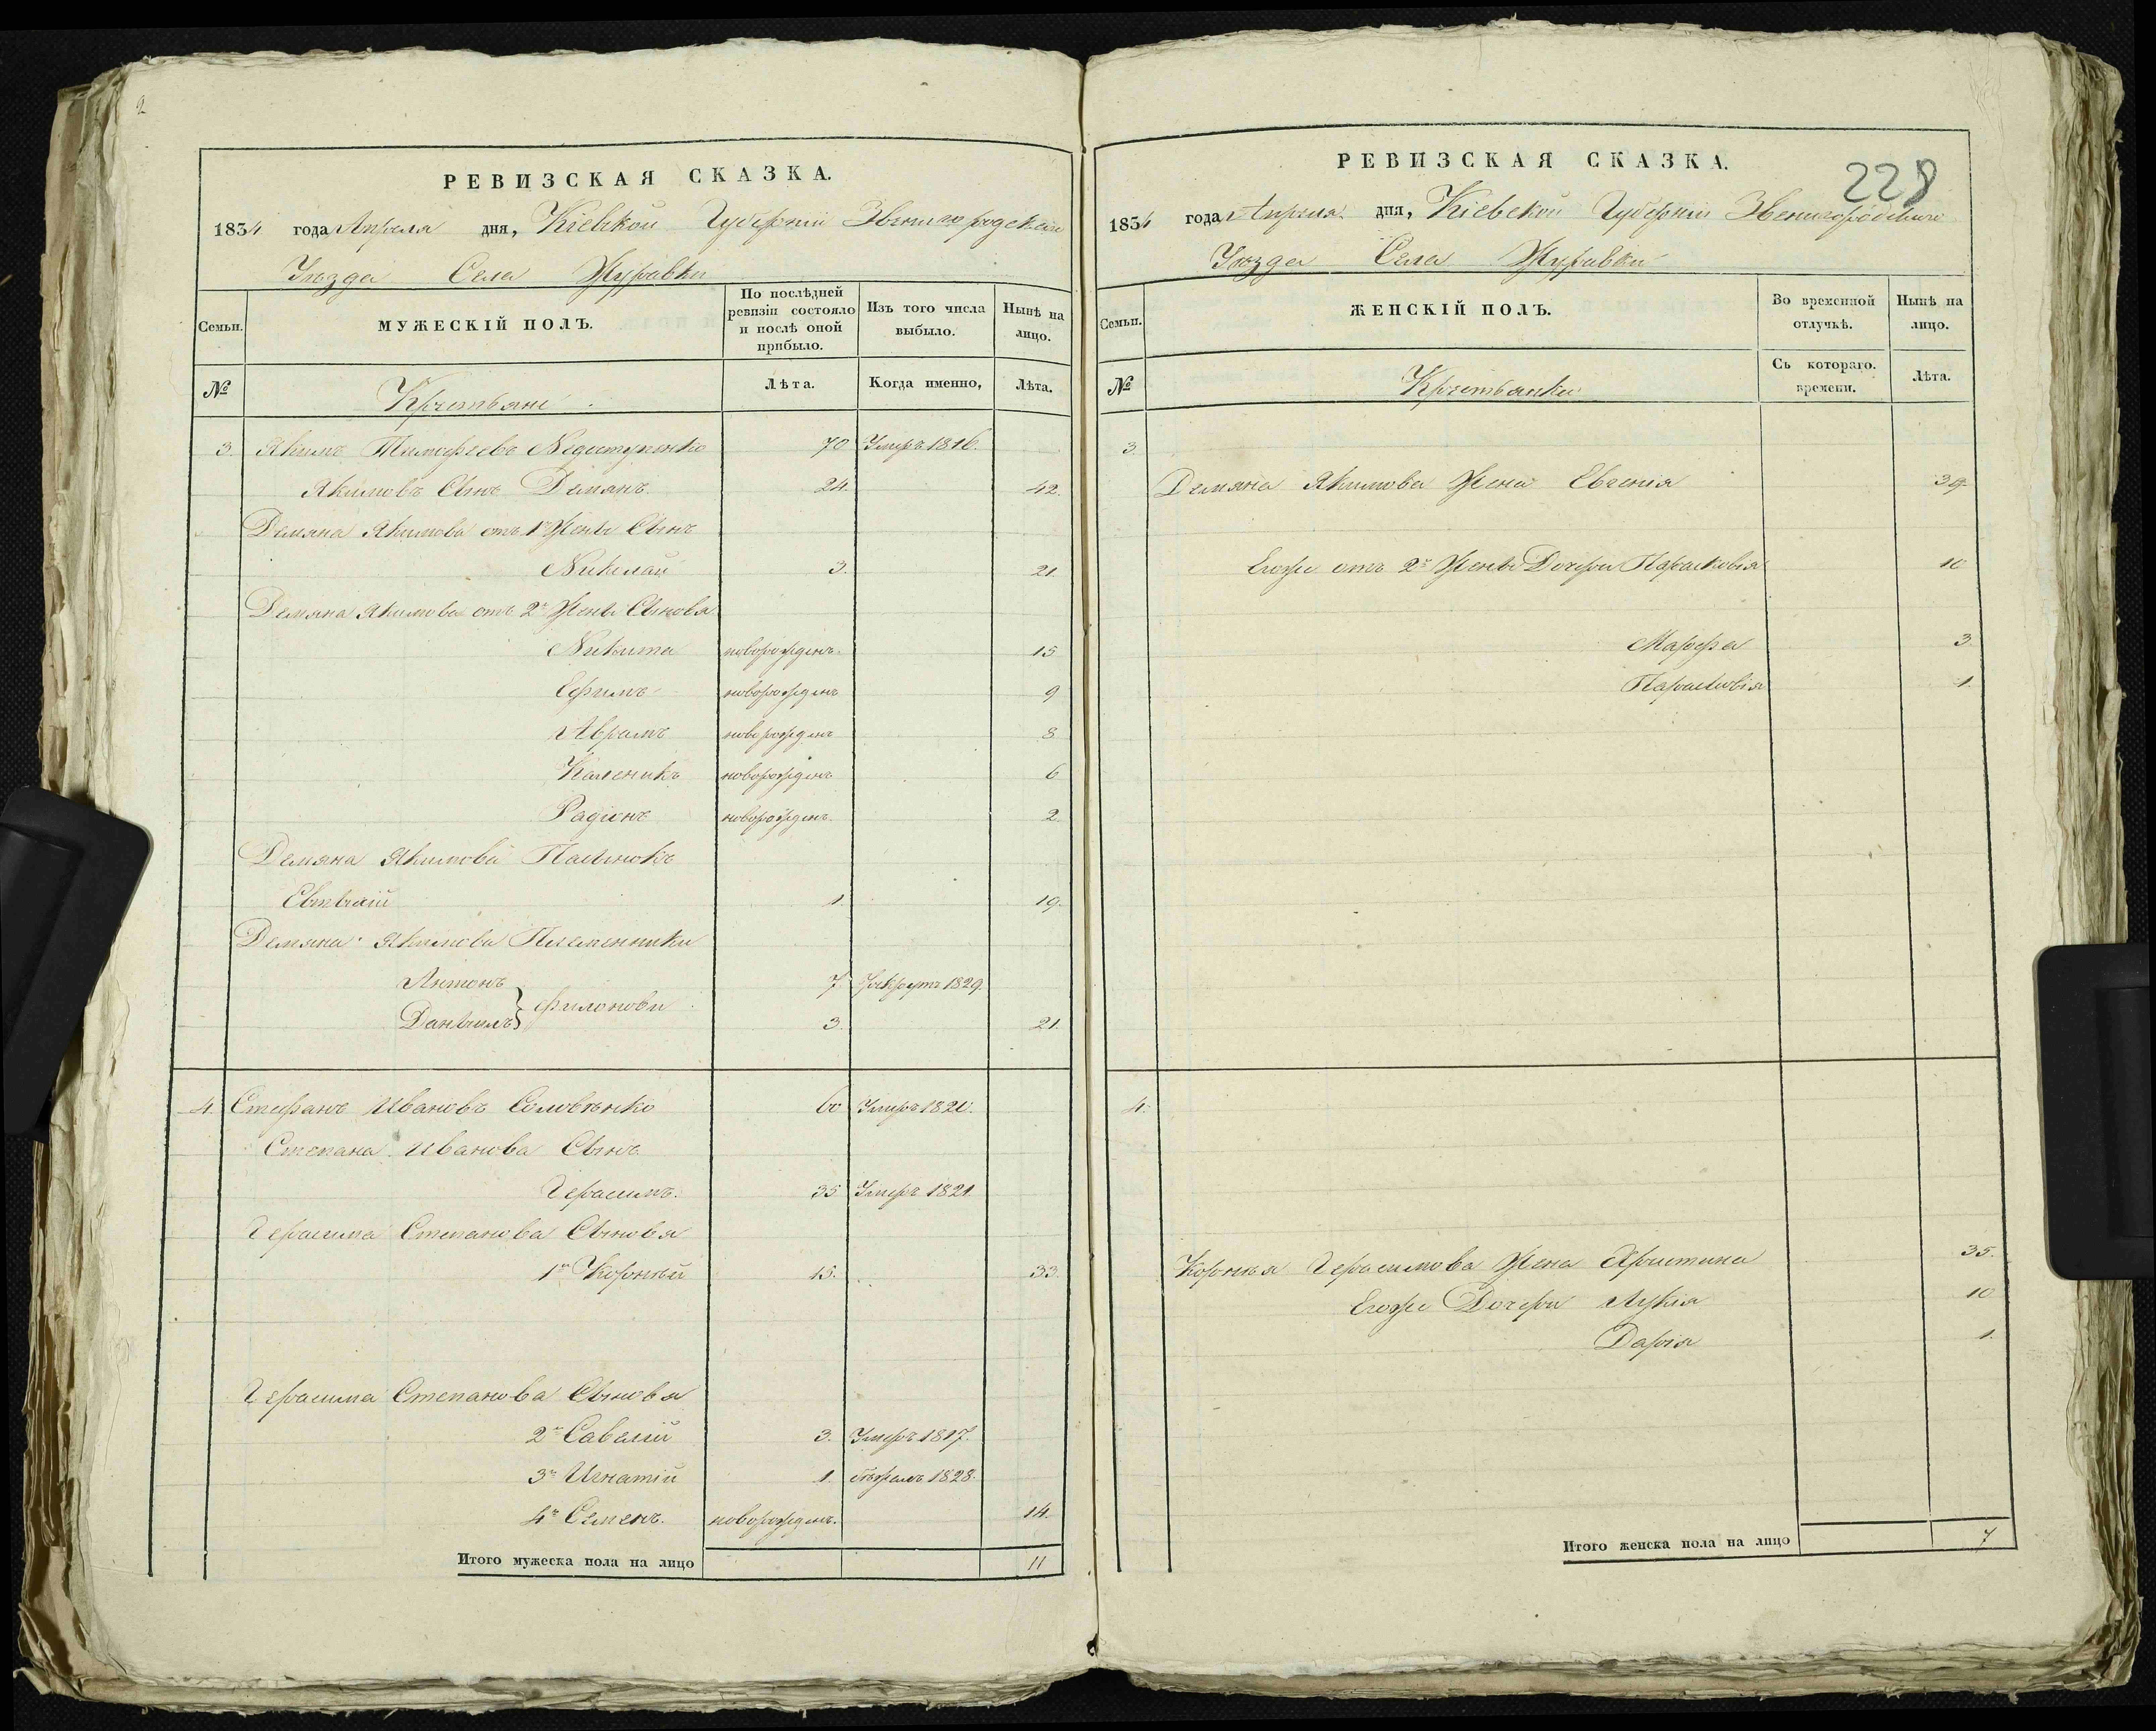 2
РЕВИЗСКАЯ СКАЗКА.
1834 года Апреля дня, Кіевской Губерніи Звенигородскаго
Уезда Села Журавки
Семьи.
МУЖЕСКІЙ ПОЛЪ.
По послѣдней ревизіи состояло и послѣ оной прибыло.
Изъ того числа выбыло.
Нынѣ на лицо.
№
Крестьяне
Лѣта.
Когда именно,
Лѣта.
3. Якимъ Тимофеевъ 70 Умеръ 1816.
Якимовъ Сынъ Демянъ 24. 42.
Демяна Якимова отъ 1й Жены Сынъ
Николай 3. 21.
Демяна Якимова отъ 2й Жены Сыновя
Никита новорожденъ. 15
Ефимъ новорожденъ 9
Аврамъ новорожденъ 8
Каленикъ новорожденъ 6
Радіонъ новорожденъ. 2.
Демяна Якимова Пасынокъ
1. 19.
Демяна Якимова Племенники
Антонъ 7 рекрутъ 1829.
Филонови
Даніилъ 3. 21.
4. Стефанъ Ивановъ Соловѣнко 60 Умеръ 1820.
Степана Иванова Сынъ
Герасимъ. 35 Умеръ 1821
Герасима Степанова Сыновя
1й Корнѣй 15. 33.
Герасима Степанова Сыновя
2й Савелій 3. Умеръ 1817.
3й Игнатій 1. бѣжалъ 1828.
4й Семенъ. новорожденъ. 14.
Итого мужеска пола на лицо 11
РЕВИЗСКАЯ СКАЗКА.
228
1834 года Апреля дня, Кіевской Губерніи Звенигородскаго
Уезда Села Журавки
Семьи.
ЖЕНСКІЙ ПОЛЪ.
Во временной отлучкѣ.
Нынѣ на лицо.
№
Крестьянки
Съ котораго. времени.
Лѣта.
3.
Демяна Якимова Жена Евгенія 39.
Егоже отъ 2й Жены Дочери Парасковія 10
Марфа 3
Парасковія 1.
4.
Корнѣя Герасимова Жена Христина 35.
Егоже Дочери Лукія 10
Дарія 1.
Итого женска пола на лицо 7